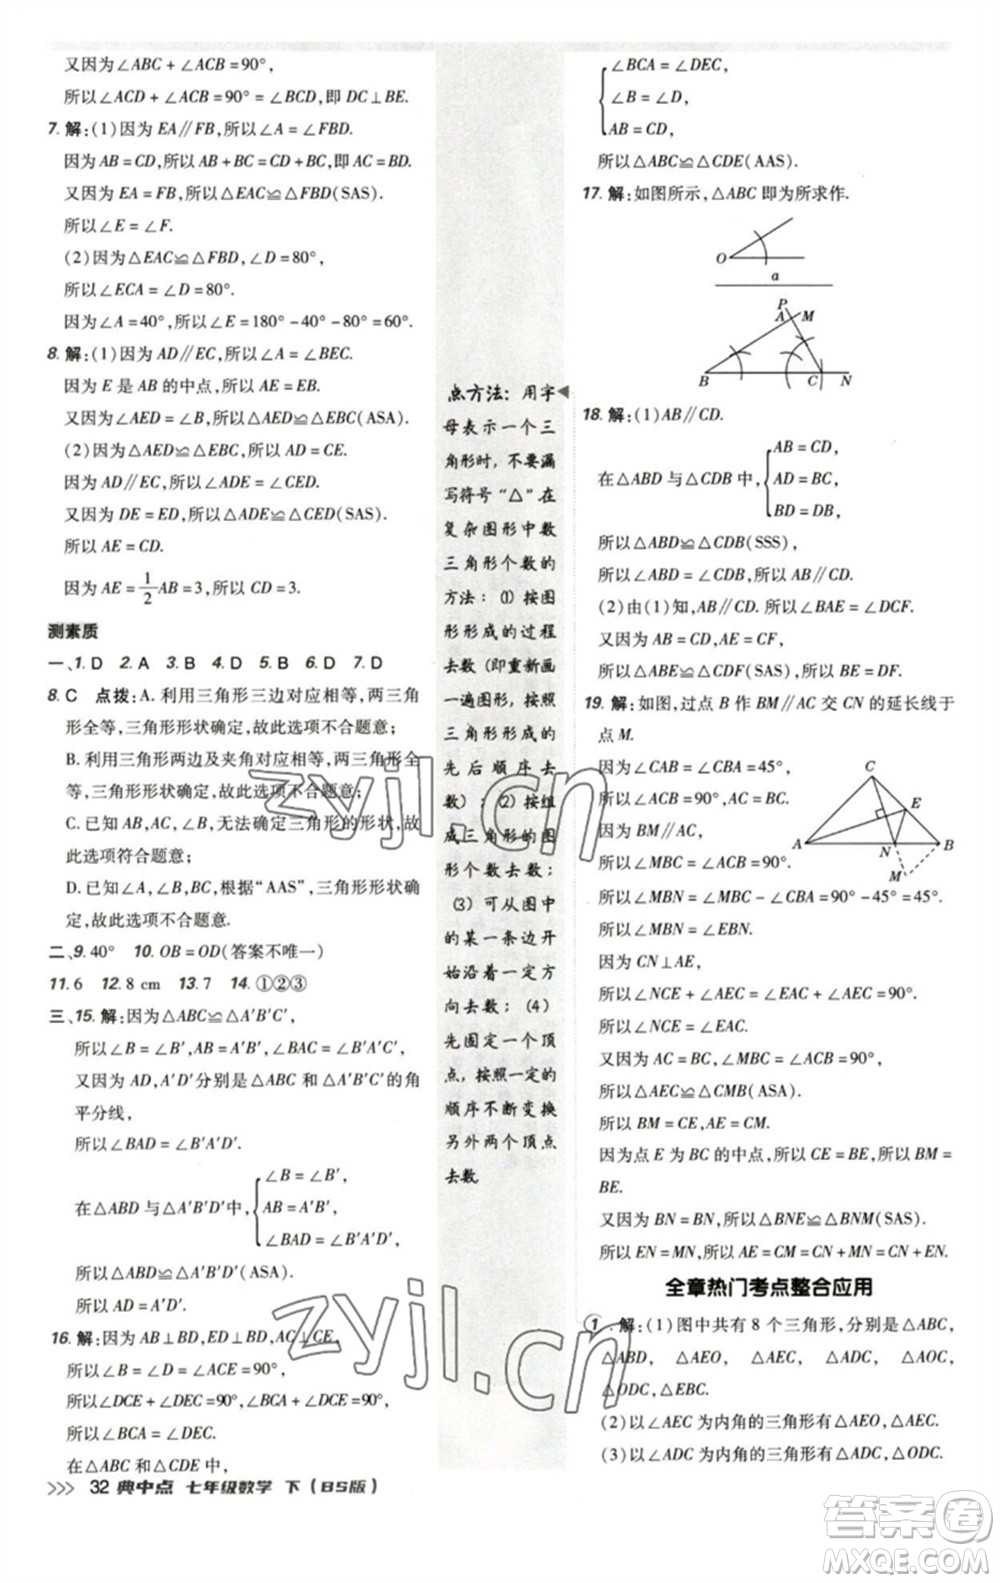 又因为∠ABC + ∠ACB = 90°,
所以∠ACD + ∠ACB = 90° = ∠BCD,即 DC⊥BE.
7. 解:(1)因为 EA∥FB,所以∠A = ∠FBD.
因为 AB = CD,所以 AB + BC = CD + BC,即 AC = BD.
又因为 EA = FB,所以△EAC≌△FBD(SAS).
所以∠E = ∠F.
(2)因为△EAC≌△FBD,∠D = 80°,
所以∠ECA = ∠D = 80°.
因为∠A = 40°,所以∠E = 180° - 40° - 80° = 60°.
8. 解:(1)因为 AD∥EC,所以∠A = ∠BEC.
因为 E 是 AB 的中点,所以 AE = EB.
又因为∠AED = ∠B,所以△AED≌△EBC(ASA).
(2)因为△AED≌△EBC,所以 AD = CE.
因为 AD∥EC,所以∠ADE = ∠CED.
又因为 DE = ED,所以△ADE≌△CED(SAS).
所以 AE = CD.
因为 AE = 1/2 AB = 3,所以 CD = 3.
测素质
一、1. D 2. A 3. B 4. D 5. D 6. D 7. D
8. C 点拨:A. 利用三角形三边对应相等,两三角
形全等,三角形形状确定,故此选项不合题意;
B. 利用三角形两边及夹角对应相等,两三角形全
等,三角形形状确定,故此选项不合题意;
C. 已知 AB,AC,∠B,无法确定三角形的形状,故
此选项符合题意;
D. 已知∠A,∠B,BC,根据“AAS”,三角形形状确
定,故此选项不合题意.
二、9. 40° 10. OB = OD(答案不唯一)
11. 6 12. 8 cm 13. 7 14. ①②③
三、15. 解:因为△ABC≌△A′B′C′,
所以∠B = ∠B′,AB = A′B′,∠BAC = ∠B′A′C′.
又因为 AD,A′D′分别是△ABC 和△A′B′C′的角
平分线,
所以∠BAD = ∠B′A′D′.
在△ABD 与△A′B′D′中,
∠B = ∠B′,
AB = A′B′,
∠BAD = ∠B′A′D′,
所以△ABD≌△A′B′D′(ASA).
所以 AD = A′D′.
16. 解:因为 AB⊥BD,ED⊥BD,AC⊥CE,
所以∠B = ∠D = ∠ACE = 90°.
所以∠DCE + ∠DEC = 90°,∠BCA + ∠DCE = 90°.
所以∠BCA = ∠DEC.
在△ABC 和△CDE 中,
32 典中点 七年级数学 下(BS版)
点方法: 用字
母表示一个三
角形时,不要漏
写符号“△”在
复杂图形中数
三角形个数的
方法:(1)按图
形形成的过程
去数(即重新画
一遍图形,按照
三角形形成的
先后顺序去
数);(2)按组
成三角形的图
形个数去数;
(3)可从图中
的某一条边开
始沿着一定方
向去数;(4)
先固定一个顶
点,按照一定的
顺序不断变换
另外两个顶点
去数
∠BCA = ∠DEC,
∠B = ∠D,
AB = CD,
所以△ABC≌△CDE(AAS).
17. 解:如图所示,△ABC 即为所求作.
O
a
P
A M
B C N
18. 解:(1)AB∥CD.
在△ABD 与△CDB 中,
AB = CD,
AD = BC,
BD = DB,
所以△ABD≌△CDB(SSS),
所以∠ABD = ∠CDB,所以 AB∥CD.
(2)由(1)知,AB∥CD,所以∠BAE = ∠DCF.
又因为 AB = CD,AE = CF,
所以△ABE≌△CDF(SAS),所以 BE = DF.
19. 解:如图,过点 B 作 BM∥AC 交 CN 的延长线于
点 M.
因为∠CAB = ∠CBA = 45°,
所以∠ACB = 90°,AC = BC.
因为 BM∥AC,
所以∠MBC = ∠ACB = 90°.
所以∠MBN = ∠MBC - ∠CBA = 90° - 45° = 45°.
所以∠MBN = ∠EBN.
因为 CN⊥AE,
所以∠NCE + ∠AEC = ∠EAC + ∠AEC = 90°.
所以∠NCE = ∠EAC.
又因为 AC = BC,∠ACB = ∠CBM = 90°,
所以△ACE≌△CMB(ASA).
所以 BM = CE,AE = CM.
因为点 E 为 BC 的中点,所以 CE = BE,所以 BM =
BE.
又因为 BN = BN,所以△BNE≌△BNM(SAS).
所以 EN = MN,所以 AE = CM = CN + MN = CN + EN.
C
E
A N B
M
全章热门考点整合应用
1. 解:(1)图中共有 8 个三角形,分别是△ABC,
△ABD, △AEO, △AEC, △ADC, △AOC,
△ODC,△EBC.
(2)以∠AEC 为内角的三角形有△AEO,△AEC.
(3)以∠ADC 为内角的三角形有△ADC,△ODC.
zyjl.cn
zyjl.cn
答案圈
MXQE.COM